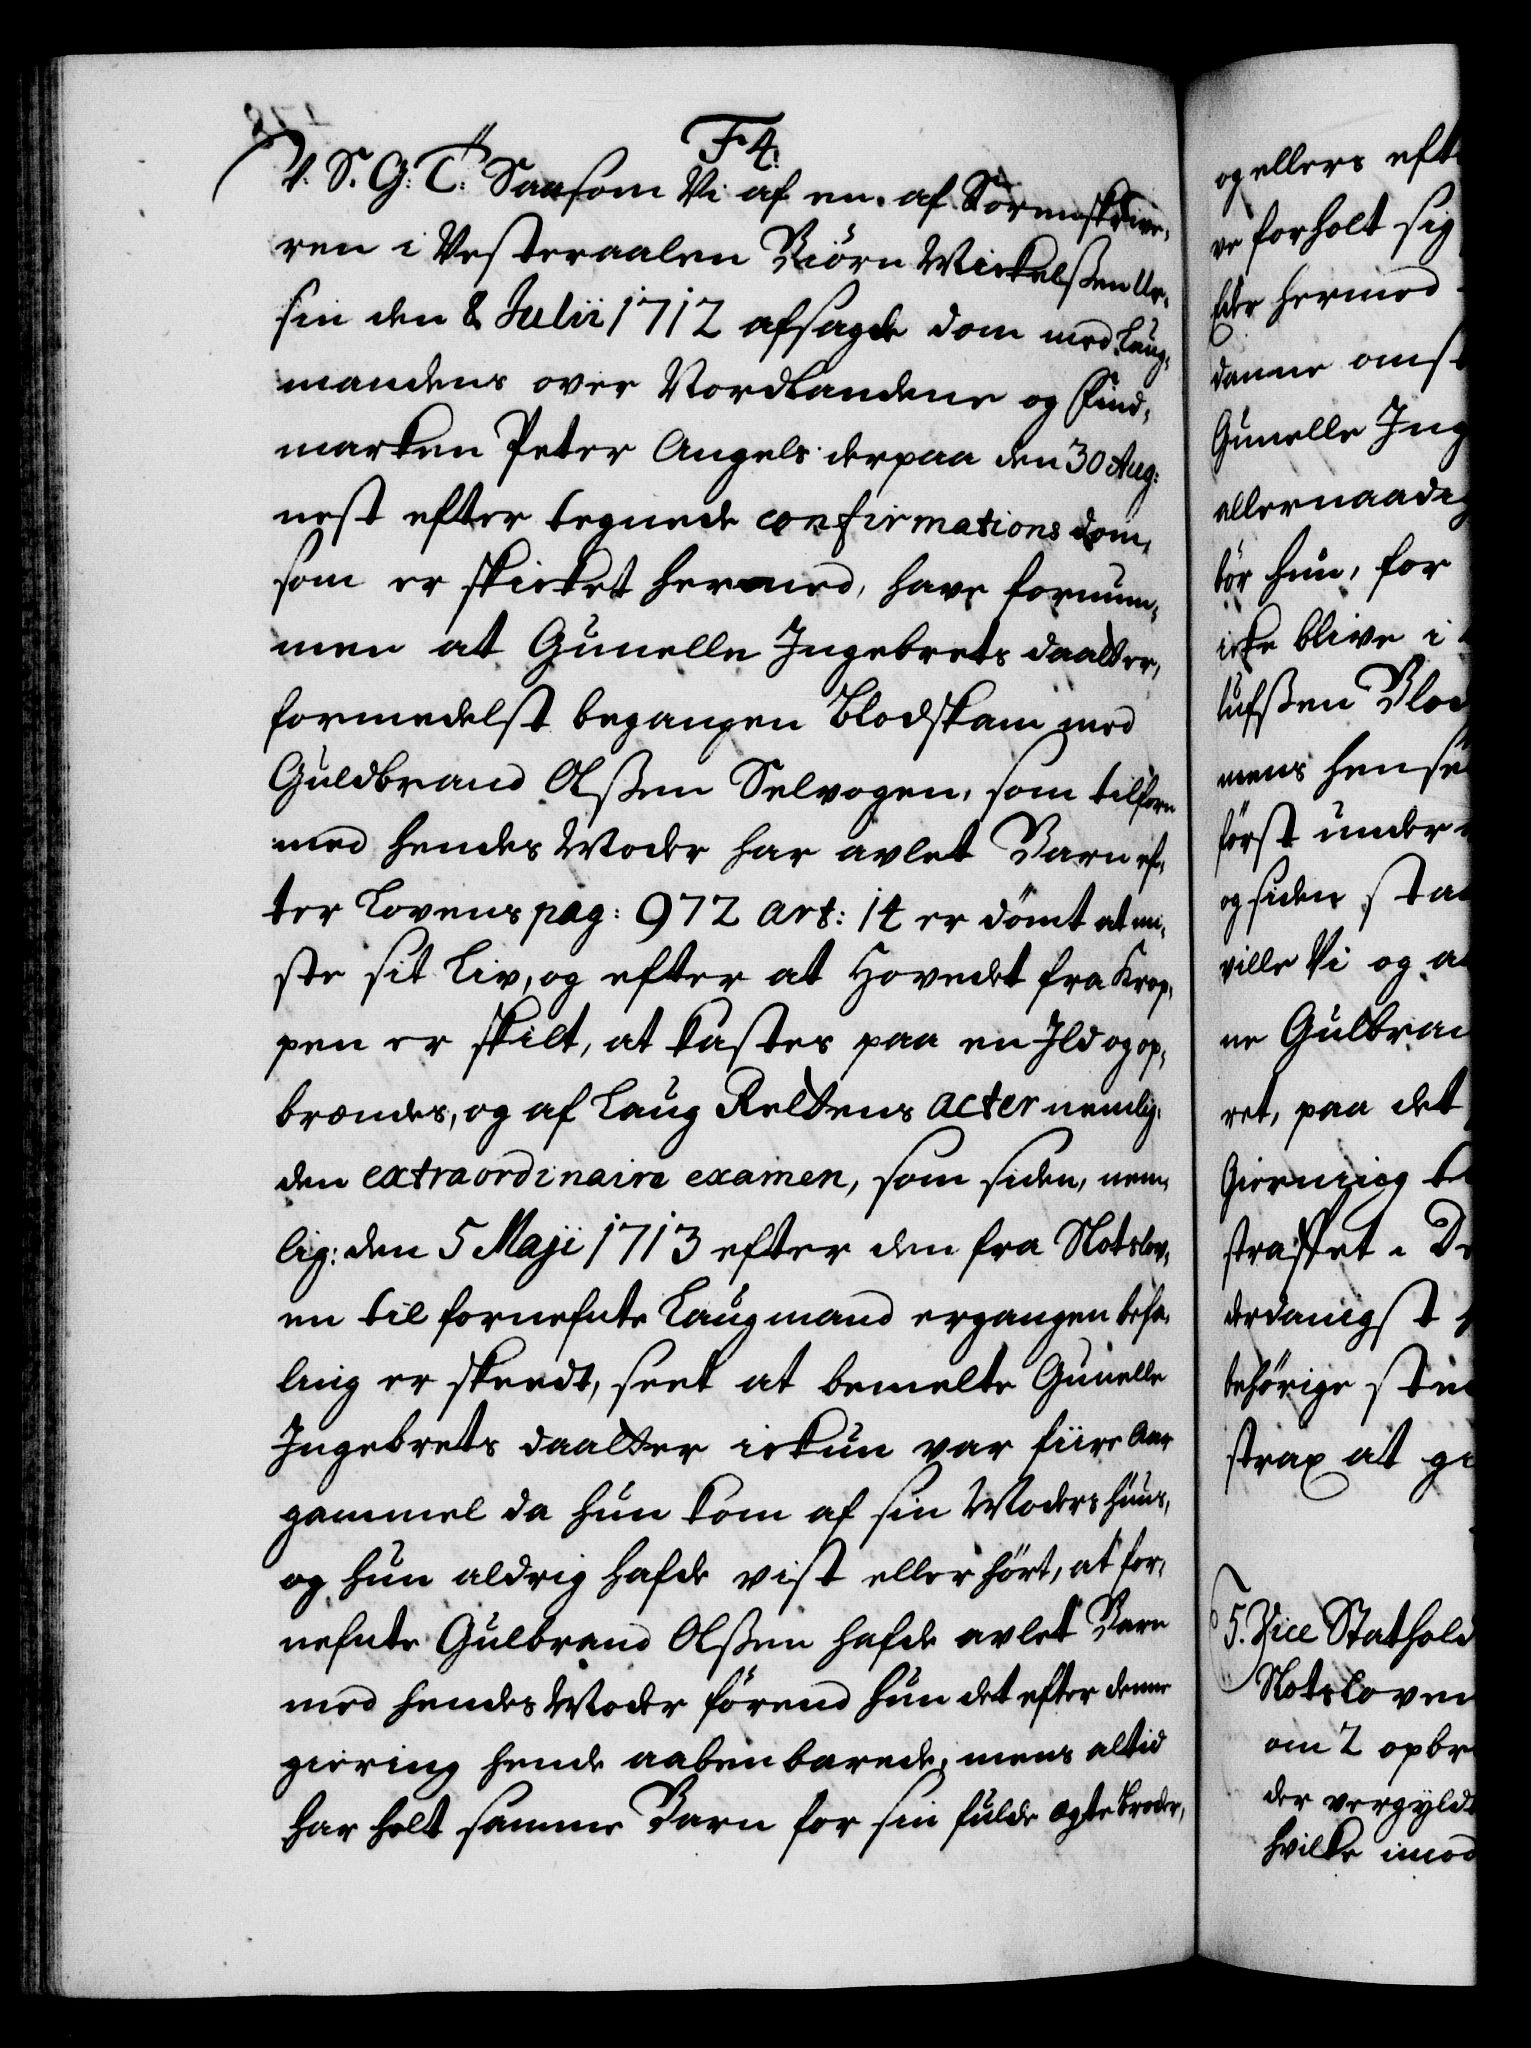 F 4.
V. S. G. T. Saasom Vi af en af Sörenskrive-
ren i Vesteraalen Biörn Mickelssen Ur-
sin den 8 Julii 1712 afsagde dom med Laug-
mandens over Nordlandene og Find-
marken Peter Angels derpaa den 30 Aug:
nest efter tegnede confirmations dom,
som er skicket hermed, have fornum-
men at Gunelle Ingebrets daatter,
formedelst begangen Blodskam med
Guldbrand Olssen Selvogen, som tilforn
med hendes Moder har avlet Barn ef-
ter Lovens pag: 972 art: 14 er dömt at mi-
ste sit Liv, og efter at Hovedet fra Krop-
pen er skilt, at kastes paa en Ild og op-
brændes, og af Laug Rettens acter nemlig:
den extraordinaire examen, som siden, nem-
lig: den 5 Maji 1713 efter den fra Slotslov-
en til fornefnte Laugmand ergangen befa-
ling er skeedt, seet at bemelte Gunelle
Ingebrets daatter ickun var fiire Aar
gammel da hun kom af sin Moders huus,
og hun aldrig hafde vist eller hört, at for-
nefnte Gulbrand Olssen hafde avlet Barn
med hendes Moder förend hun det efter denne
giering hende aabenbarede, mens altid
har holt samme Barn for sin fulde Ægte broder,
og ellers eft
ve forholt sig
Eder hermed
danne omst
Gunelle Ing
allernaadig
bör hun, for
icke blive i
lufssen Blod
mens hense
först under
og siden sta
ville Vi og a
ne Gulbran
ret, paa det
Gierning be
straffet. D
derdanigst
behörige ste
strax at gi
5. Vice Stathold
Slotsloven
om 2 opbr
der vergyld
hvilke imod